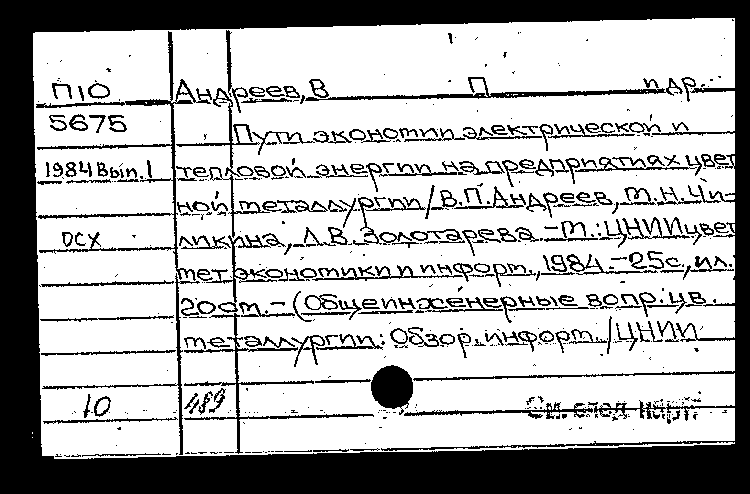 П10 Андреев, В П и др.
5675 Пути экономии электрической и
1984 Вып. 1 тепловой энергии на предприятиях цвет
ной металлургии / В.П. Андреев, М.Н. Чи-
ОСХ ликина, Л.В. Золотарева. - М.: ЦНИИцвет
мет экономики и информ., 1984. - 25с., ил.;
20см. - (Общеинженерные вопр. цв.
металлургии: Обзор. информ. / ЦНИИ
10 489 См. след. карт.